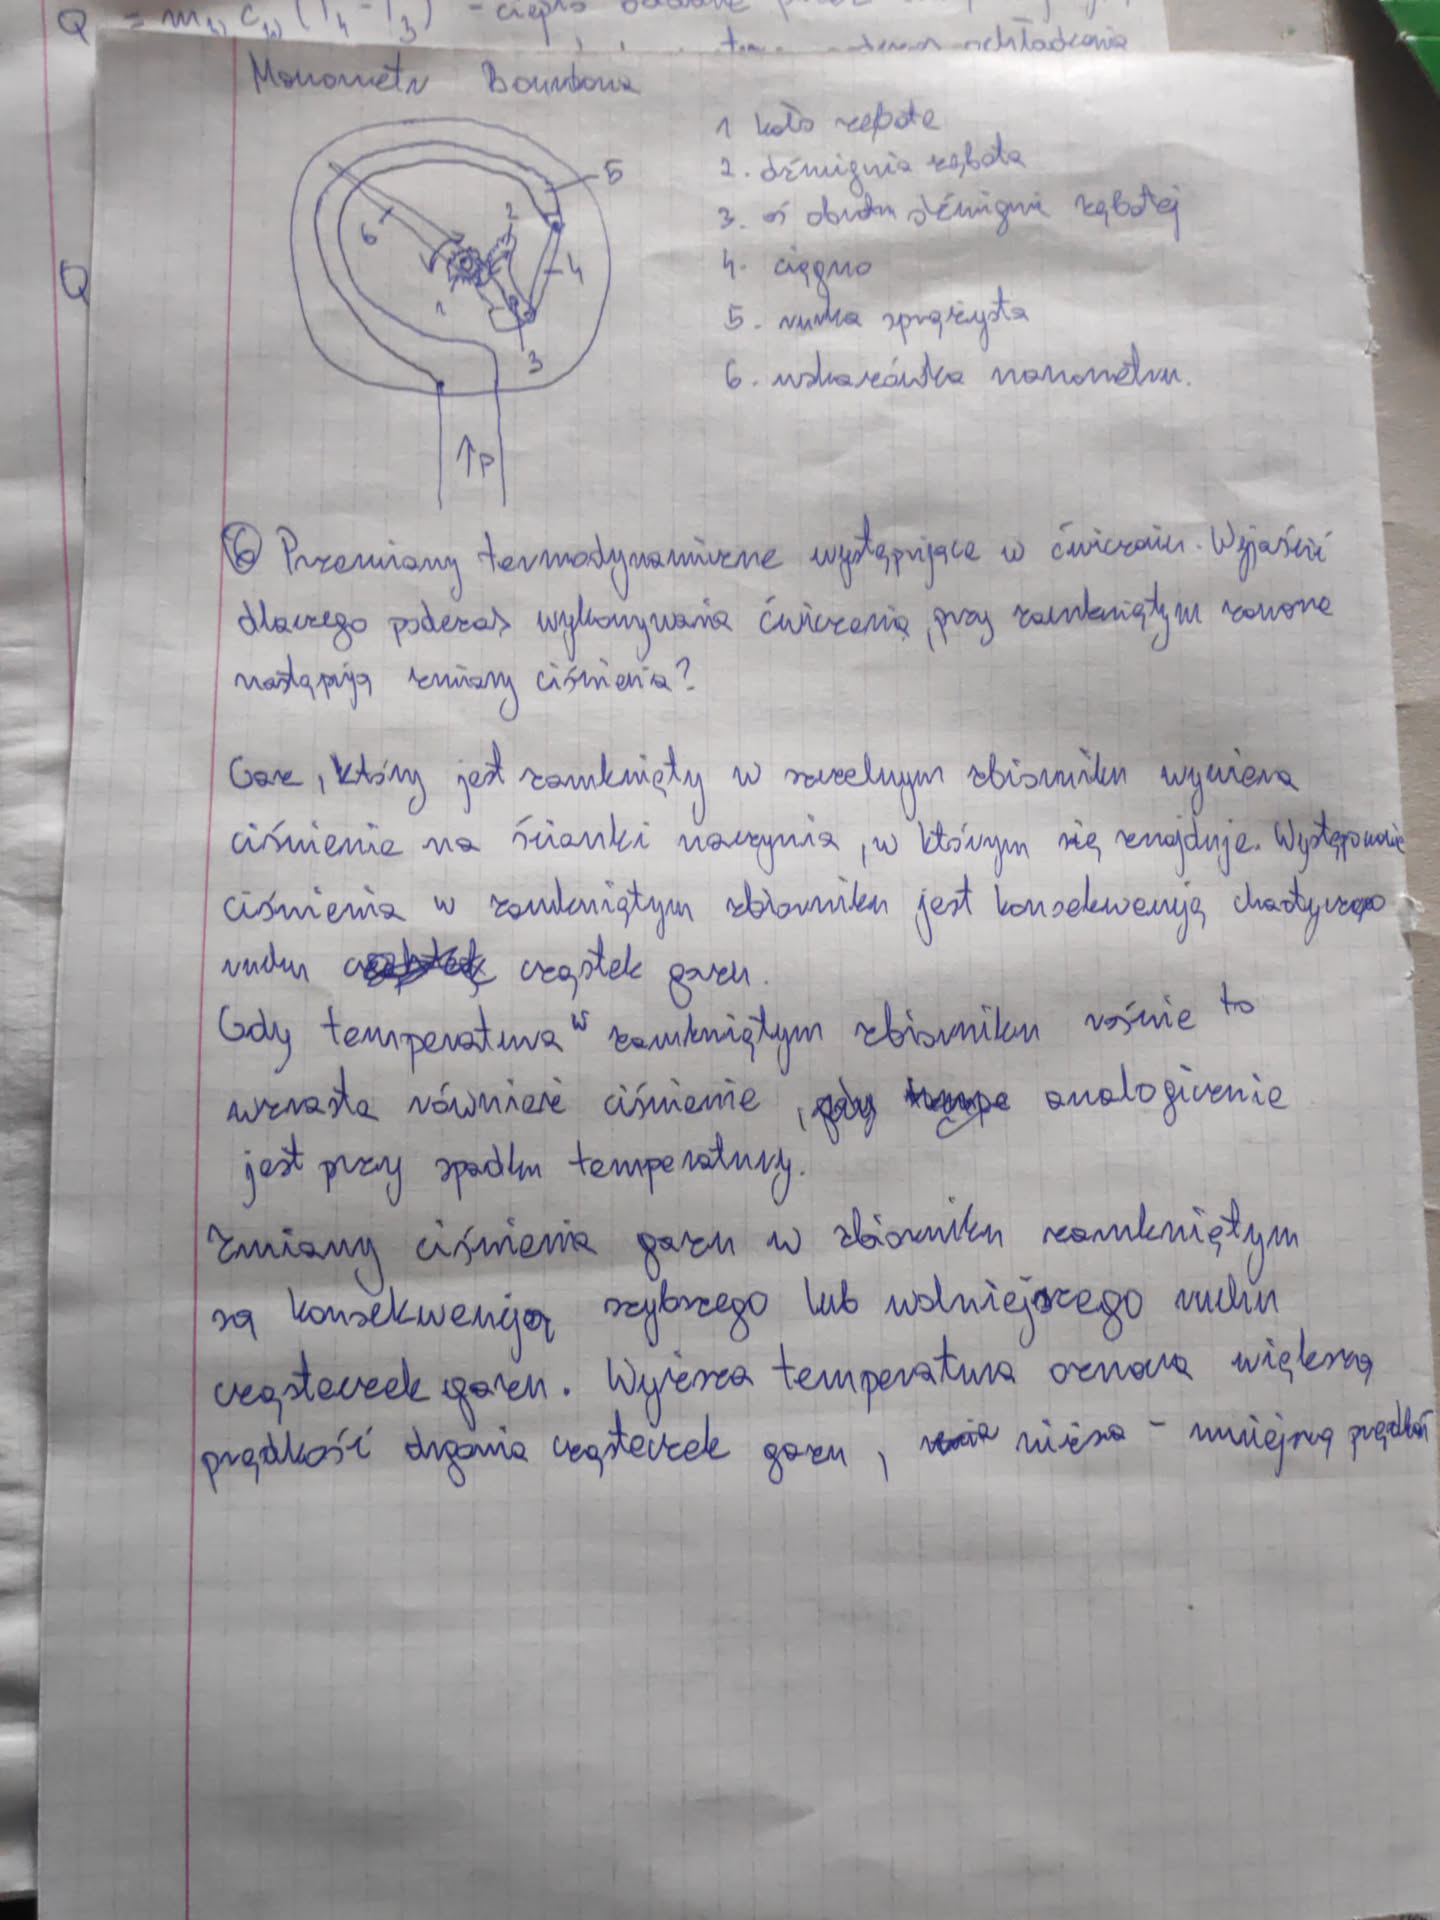 Q = m_w c_w (T_4 - T_3) - ciepło
Q
Manometr Bourdona
1 koło zębate
2. dźwignia zębata
3. oś obrotu dźwigni zębatej
4. cięgno
5. rurka sprężysta
6. wskazówka manometru.
5
2
6
4
1
3
↑p
⑥ Przemiany termodynamiczne występujące w ćwiczeniu. Wyjaśnić
dlaczego podczas wykonywania ćwiczenia, przy zamkniętym zaworze
nastąpiją zmiany ciśnienia?
Gaz, który jest zamknięty w szczelnym zbiorniku wywiera
ciśnienie na ścianki naczynia, w którym się znajduje. Występowanie
ciśnienia w zamkniętym zbiorniku jest konsekwencją chaotycznego
ruchu cząstek gazu.
Gdy temperatura w zamkniętym zbiorniku rośnie to
wzrasta również ciśnienie, analogicznie
jest przy spadku temperatury.
Zmiany ciśnienia gazu w zbiorniku zamkniętym
są konsekwencją szybszego lub wolniejszego ruchu
cząsteczek gazu. Wyższa temperatura oznacza większą
prędkość drgania cząsteczek gazu, niższa - mniejszą prędkość